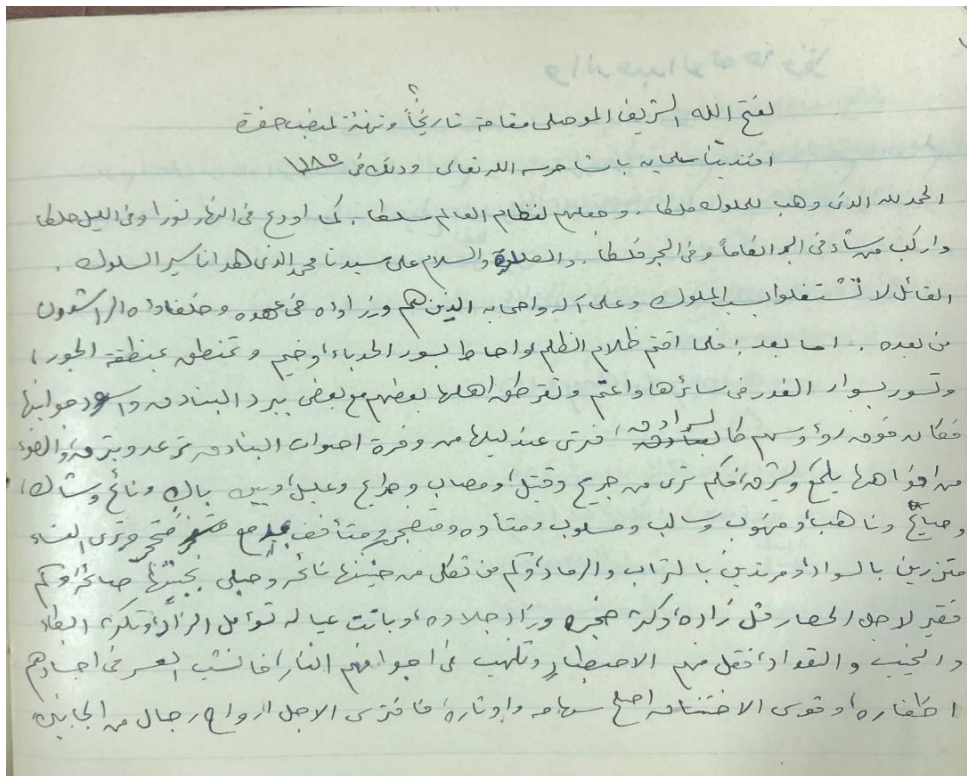 لفتح الله الشريف الموصلي مقامة تاريخاً وتهنئة لمنصب حضرة
افندينا سليمان باشا حرسه الله تعالى وذلك في ١١٨٥
الحمد لله الذي وهب للملوك ملكا . وجعلهم لنظام العالم سلكا . كما اودع في النهار نورا وفي الليل حلكا
واركب من شاء في البر انعاماً وفي البحر فلكا . والصلاة والسلام على سيدنا محمد الذي هدانا سير السلوك .
القائل لا تشتغلوا بسب الملوك وعلى آله واصحابه الذين هم وزراؤه في عهده وخلفاؤه الراشدون
من بعده . اما بعد ؛ فلما اقتم ظلام الظلم واحاط بسور الحدباء وخيم وتمنطق بمنطقة الجور ،
وتسور بسوار الغدر في سائرها واعتم وتقرطق اهلها بعضهم مع بعض ببرد البنادق واسود جوانبها
فكان فوق رؤوسهم كالسرادق ، فترى عند ليلها من وفرة اصوات البنادق ترعد وبترق والضوء
من افواهها يلمع ويشرق فكم ترى من جريح وقتيل ومصاب وطريح وعليل وبين باكٍ ونائح وشاك ،
وصايح وناهب ومنهوب وسالب ومسلوب ومتأوه ومتضجر ومتأفف مع متحجر وترى النساء
متزرين بالسواد ومرتدين بالتراب والرماد وكم من ثكلى من حنينها نائحة وحبلى بجنينها صائحة وكم
فقير لاجل الحصار قل زاده وكثر ضجره وزاد جلاده ، وباتت عياله تؤمل الزاد وتكثر البكاء
والنحيب والتعداد ، فقل منهم الاصطبار وتلهب في اجوافهم النار ، فانشب العسر في اجسادهم
اظفاره ، وقوس الاختناق اصلح سهامه واوتاره ، فافترس الاجل ارواح رجال من الجانبين